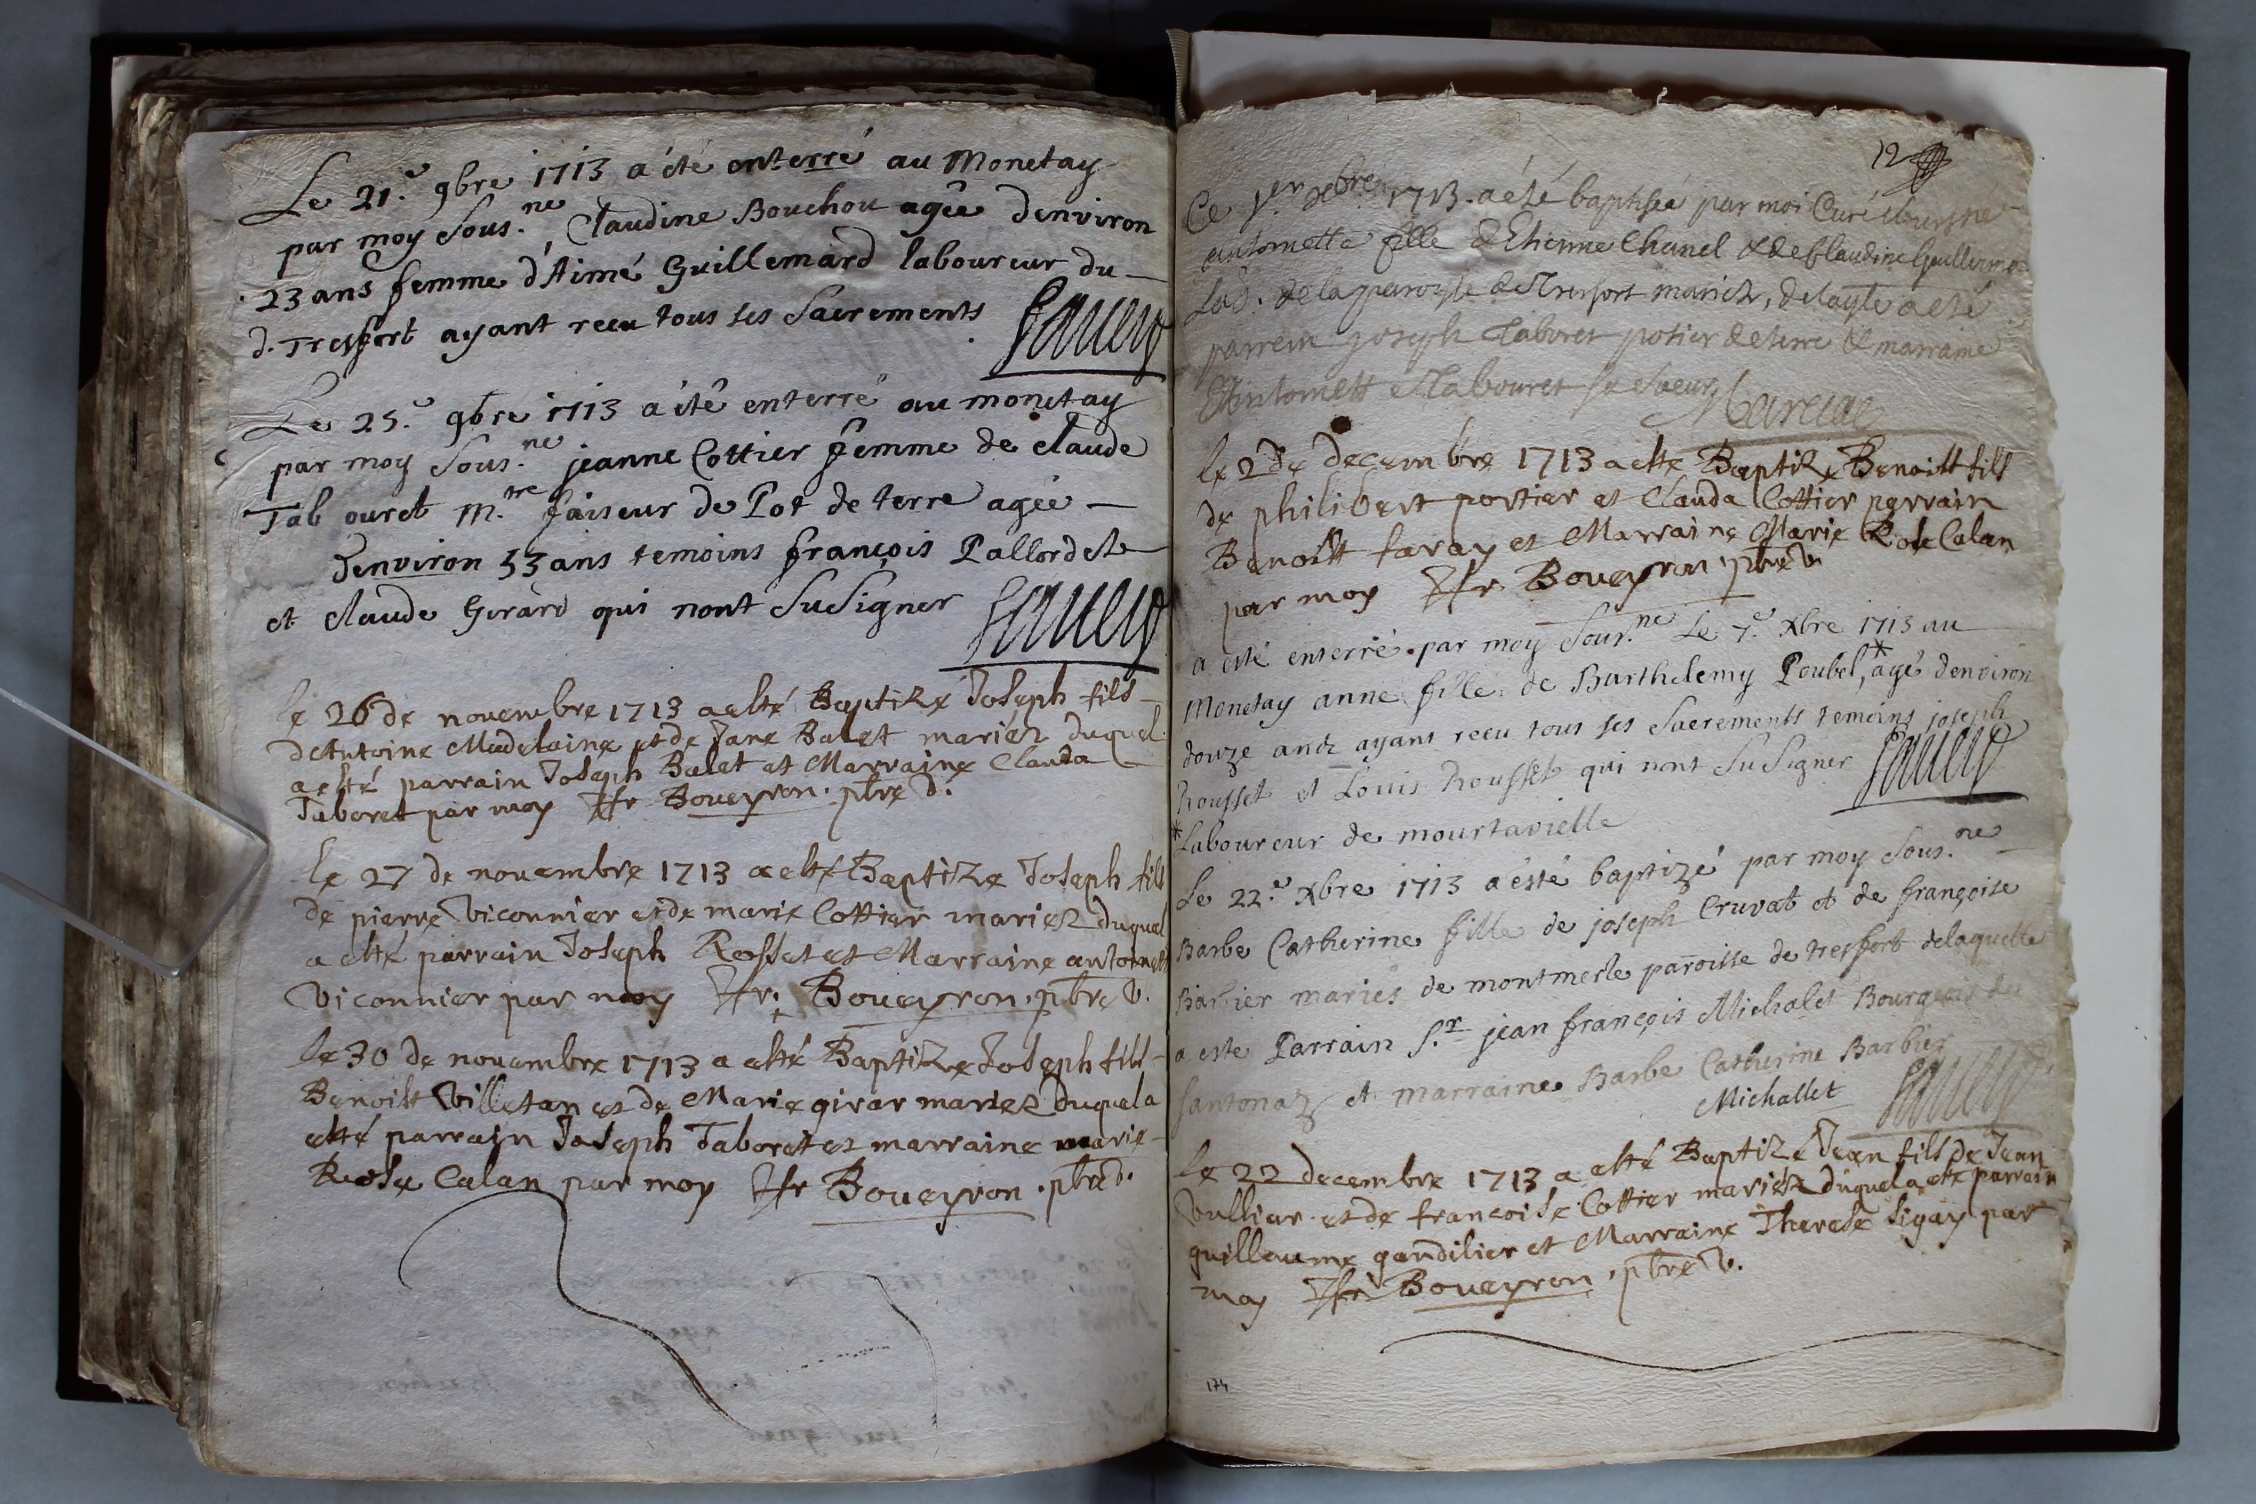 Le 21.e 9bre 1713 a été enterré au Monetay
par moy Sous.ne Claudine Bouchou agée denviron
23 ans femme d'Aimé Guillemard laboureur du
d. Tresfort ayant receu tous ses Sacrements
Le 25.e 9bre 1713 a été enterré au monetay
par moy Sous.ne jeanne Cottier femme de claude
Tabouret M.tre faiseur de Pot de terre agée
denviron 53 ans temoins françois Pallordet
et claude Girard qui nont Su Signer
le 26 de novembre 1713 a esté Baptize Joseph fils
dAntoine Madelaine et de Jane Balet mariez duquel
a esté parrain Joseph Balet et Marraine Clauda
Taboret par moy Fr Boueyron . pbre v.
le 27 de novembre 1713 a esté Baptize Joseph fils
de pierre Viconnier et de marie Cottier mariez duquel
a esté parrain Joseph Rosset et Marraine antoinett
Viconnier par moy Fr. Boueyron . pbre v.
le 30 de novembre 1713 a esté Baptize Joseph fils
Benoist Villetan et de Marie girar mariez duquel a
esté parrain Joseph Taboret et marraine marie
Rose Calan par moy Fr Boueyron . pbre v.
12
Ce 1er xbre 1713. a été baptisée par moi Curé
antoinette fille d'Etienne Chanel & de Claudine Guillerme
lad. de la paroysse de Tresfort mariez, delaqle a eté
parrein joseph Taboret potier de terre & marraine
Antoinett Tabouret sa Soeur
le 2 de decembre 1713 a esté Baptize Benoist fils
de philibert portier et Clauda Cottier parrain
Benoist faray et Marraine Marie Rose Calan
par moy Fr. Boueyron . pbre v.
a esté enterré par moy Sous.ne Le 7.e Xbre 1713 au
Monetay anne fille de Barthelemy Poubel,* agé denviron
douze ans ayant receu tous ses Sacrements temoins joseph
Rousset et Louis Rousset qui nont Su Signer
* Laboureur de mourtavielle
Le 22.e Xbre 1713 a ésté baptizé par moy Sous.ne
Barbe Catherine fille de joseph Cruvat et de françoise
Barbier mariés de montmerle paroisse de tresfort delaquelle
a este Parrain S.r jean françois Michalet Bourgeois de
santonaz et marraine Barbe Catherine Barbier
Michallet
le 22 decembre 1713 a esté Baptize Jean fils de Jean
Vullier et de francoise Cottier mariéz duquel a esté parrain
guillaume gandilier et Marraine Therese sigay par
moy Fr Boueyron . pbre v.
174